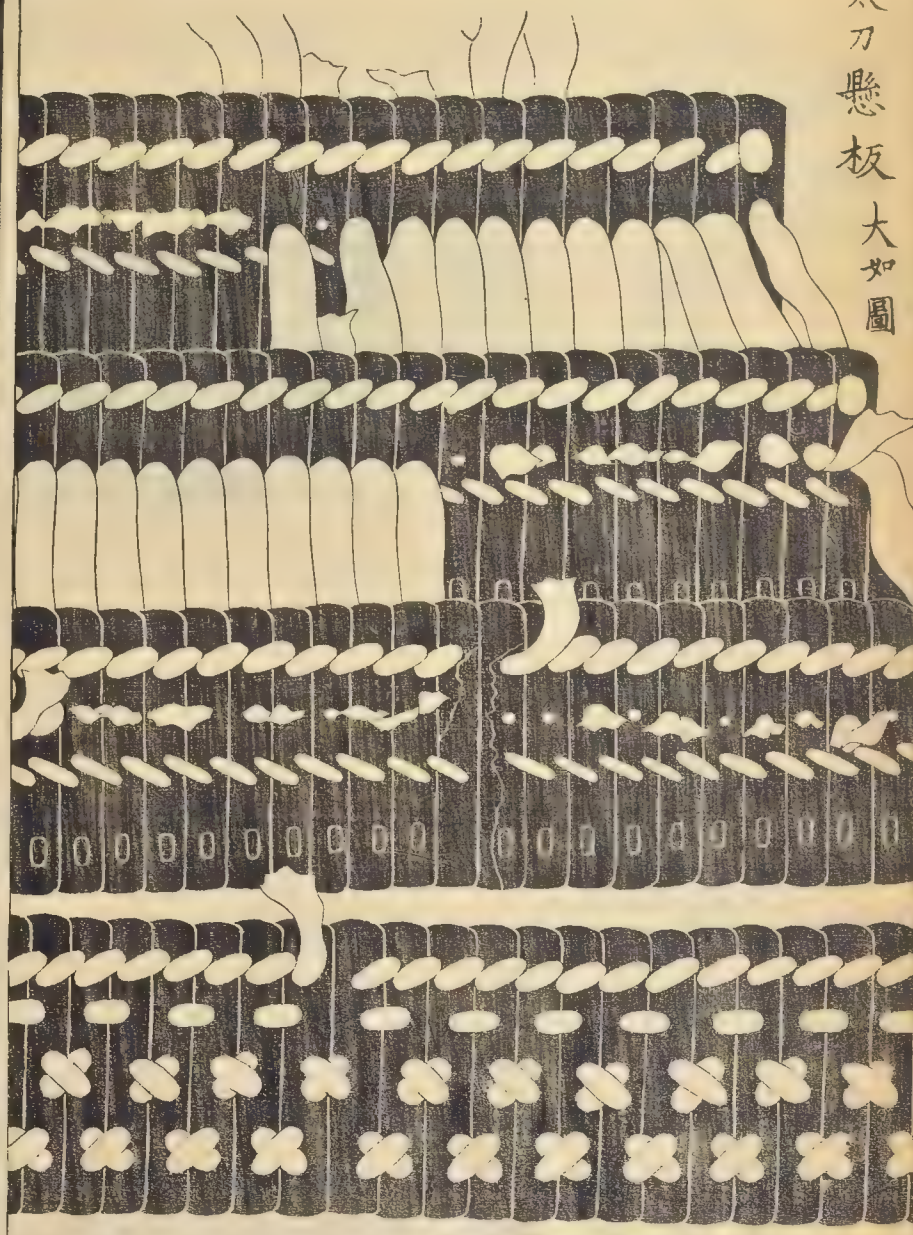 太刀懸板大如圖